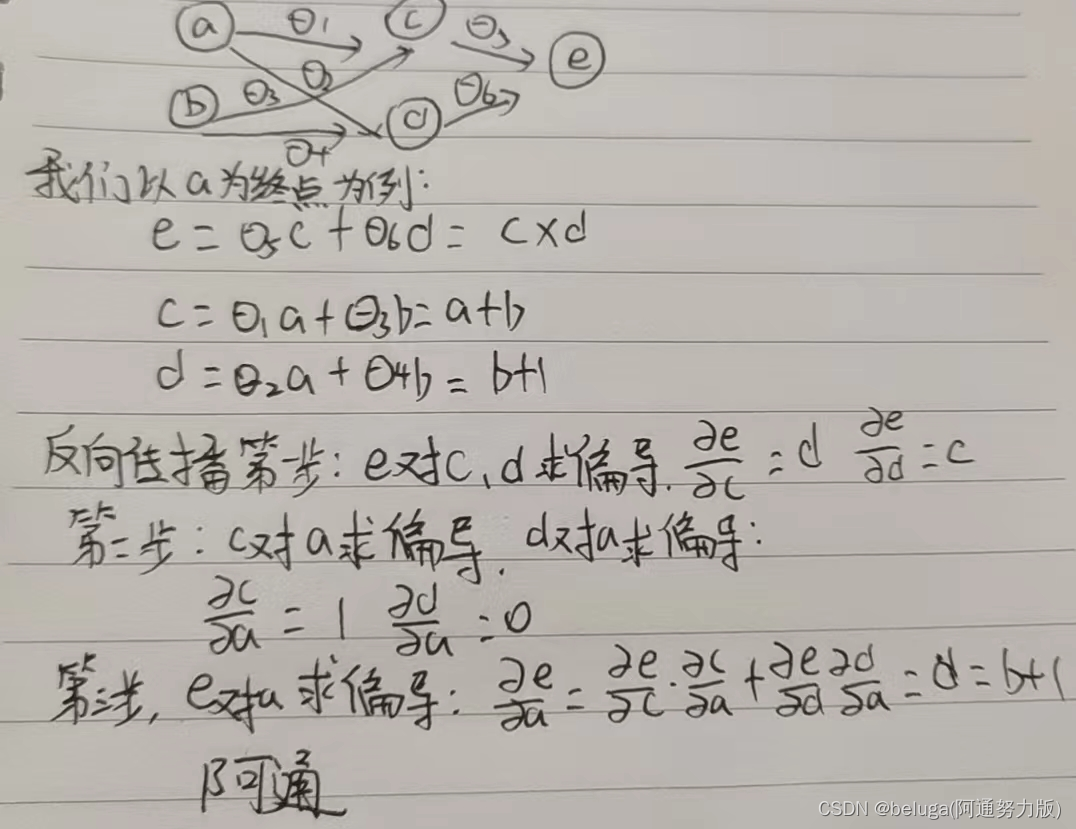 a θ1 c θ5 e
b θ3 θ2 d θ6
θ4
我们以a为终点为例:
e = θ5c + θ6d = c×d
c = θ1a + θ3b = a+b
d = θ2a + θ4b = b+1
反向传播第一步: e对c、d求偏导. ∂e/∂c = d ∂e/∂d = c
第二步: c对a求偏导、d对a求偏导:
∂c/∂a = 1 ∂d/∂a = 0
第三步, e对a求偏导: ∂e/∂a = ∂e/∂c · ∂c/∂a + ∂e/∂d ∂d/∂a = d = b+1
阿通
CSDN @beluga(阿通努力版)